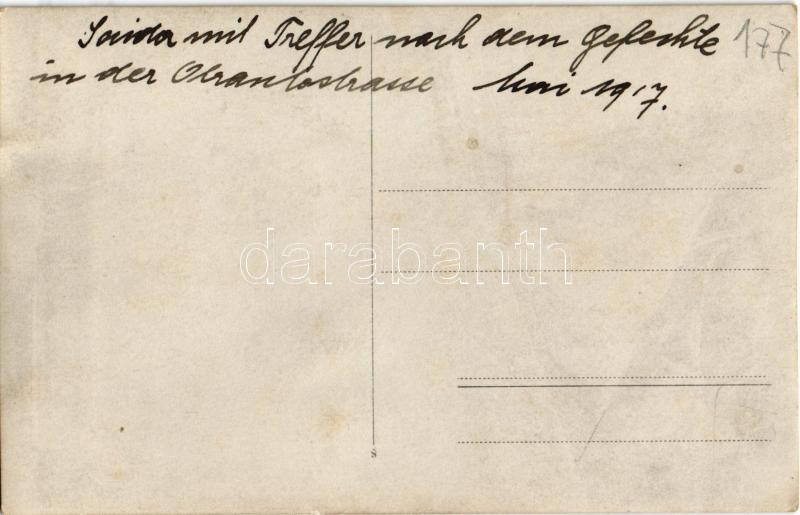 Saida mit Treffer nach dem Gefechte
177
in der Otrantostrasse Mai 1917.
darabanth